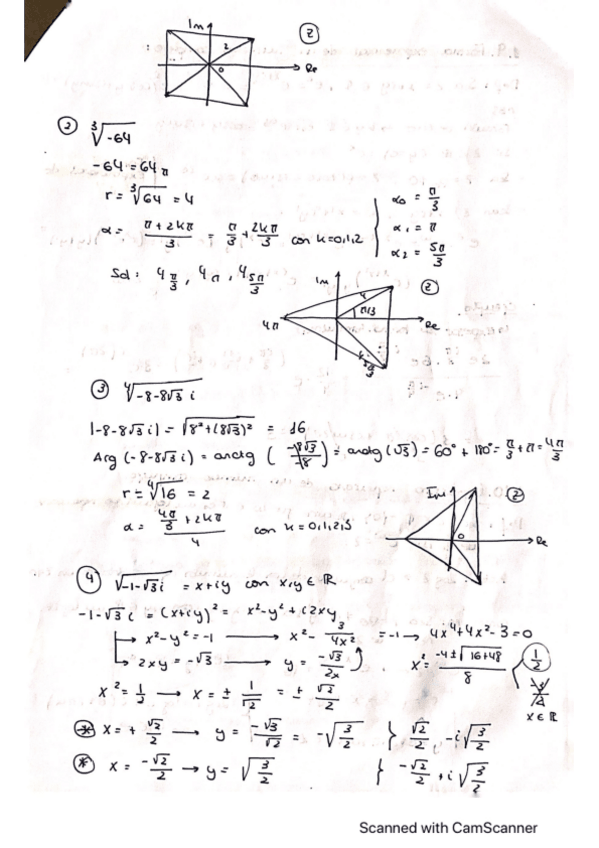 Im
②
2
0
Re
② ∛-64
-64 = 64 π
r = ∛64 = 4
α = (π + 2kπ)/3 = π/3 + 2kπ/3 con k=0,1,2
α₀ = π/3
α₁ = π
α₂ = 5π/3
Sol: 4 π/3, 4 π, 4 5π/3
Im
②
4
π/3
4π
Re
③ ∜-8-8√3 i
|-8-8√3 i| = √8²+(8√3)² = 16
Arg (-8-8√3 i) = arctg (-8√3/-8) = arctg (√3) = 60° + 180° = π/3 + π = 4π/3
r = ∜16 = 2
α = (4π/3 + 2kπ)/4 con k=0,1,2,3
Im
②
0
Re
④ √-1-√3 i = x+iy con x,y ∈ ℝ
-1-√3 i = (x+iy)² = x²-y²+i2xy
x²-y² = -1 → x² - 3/4x² = -1 → 4x⁴+4x²-3=0
2xy = -√3 → y = -√3/2x
x² = (-4±√16+48)/8
1/2
x ∈ ℝ
x² = 1/2 → x = ± 1/√2 = ± √2/2
⊛ x = + √2/2 → y = -√3/√2 = -√3/2 } √2/2 - i√3/2
⊛ x = -√2/2 → y = √3/2 } -√2/2 + i√3/2
Scanned with CamScanner